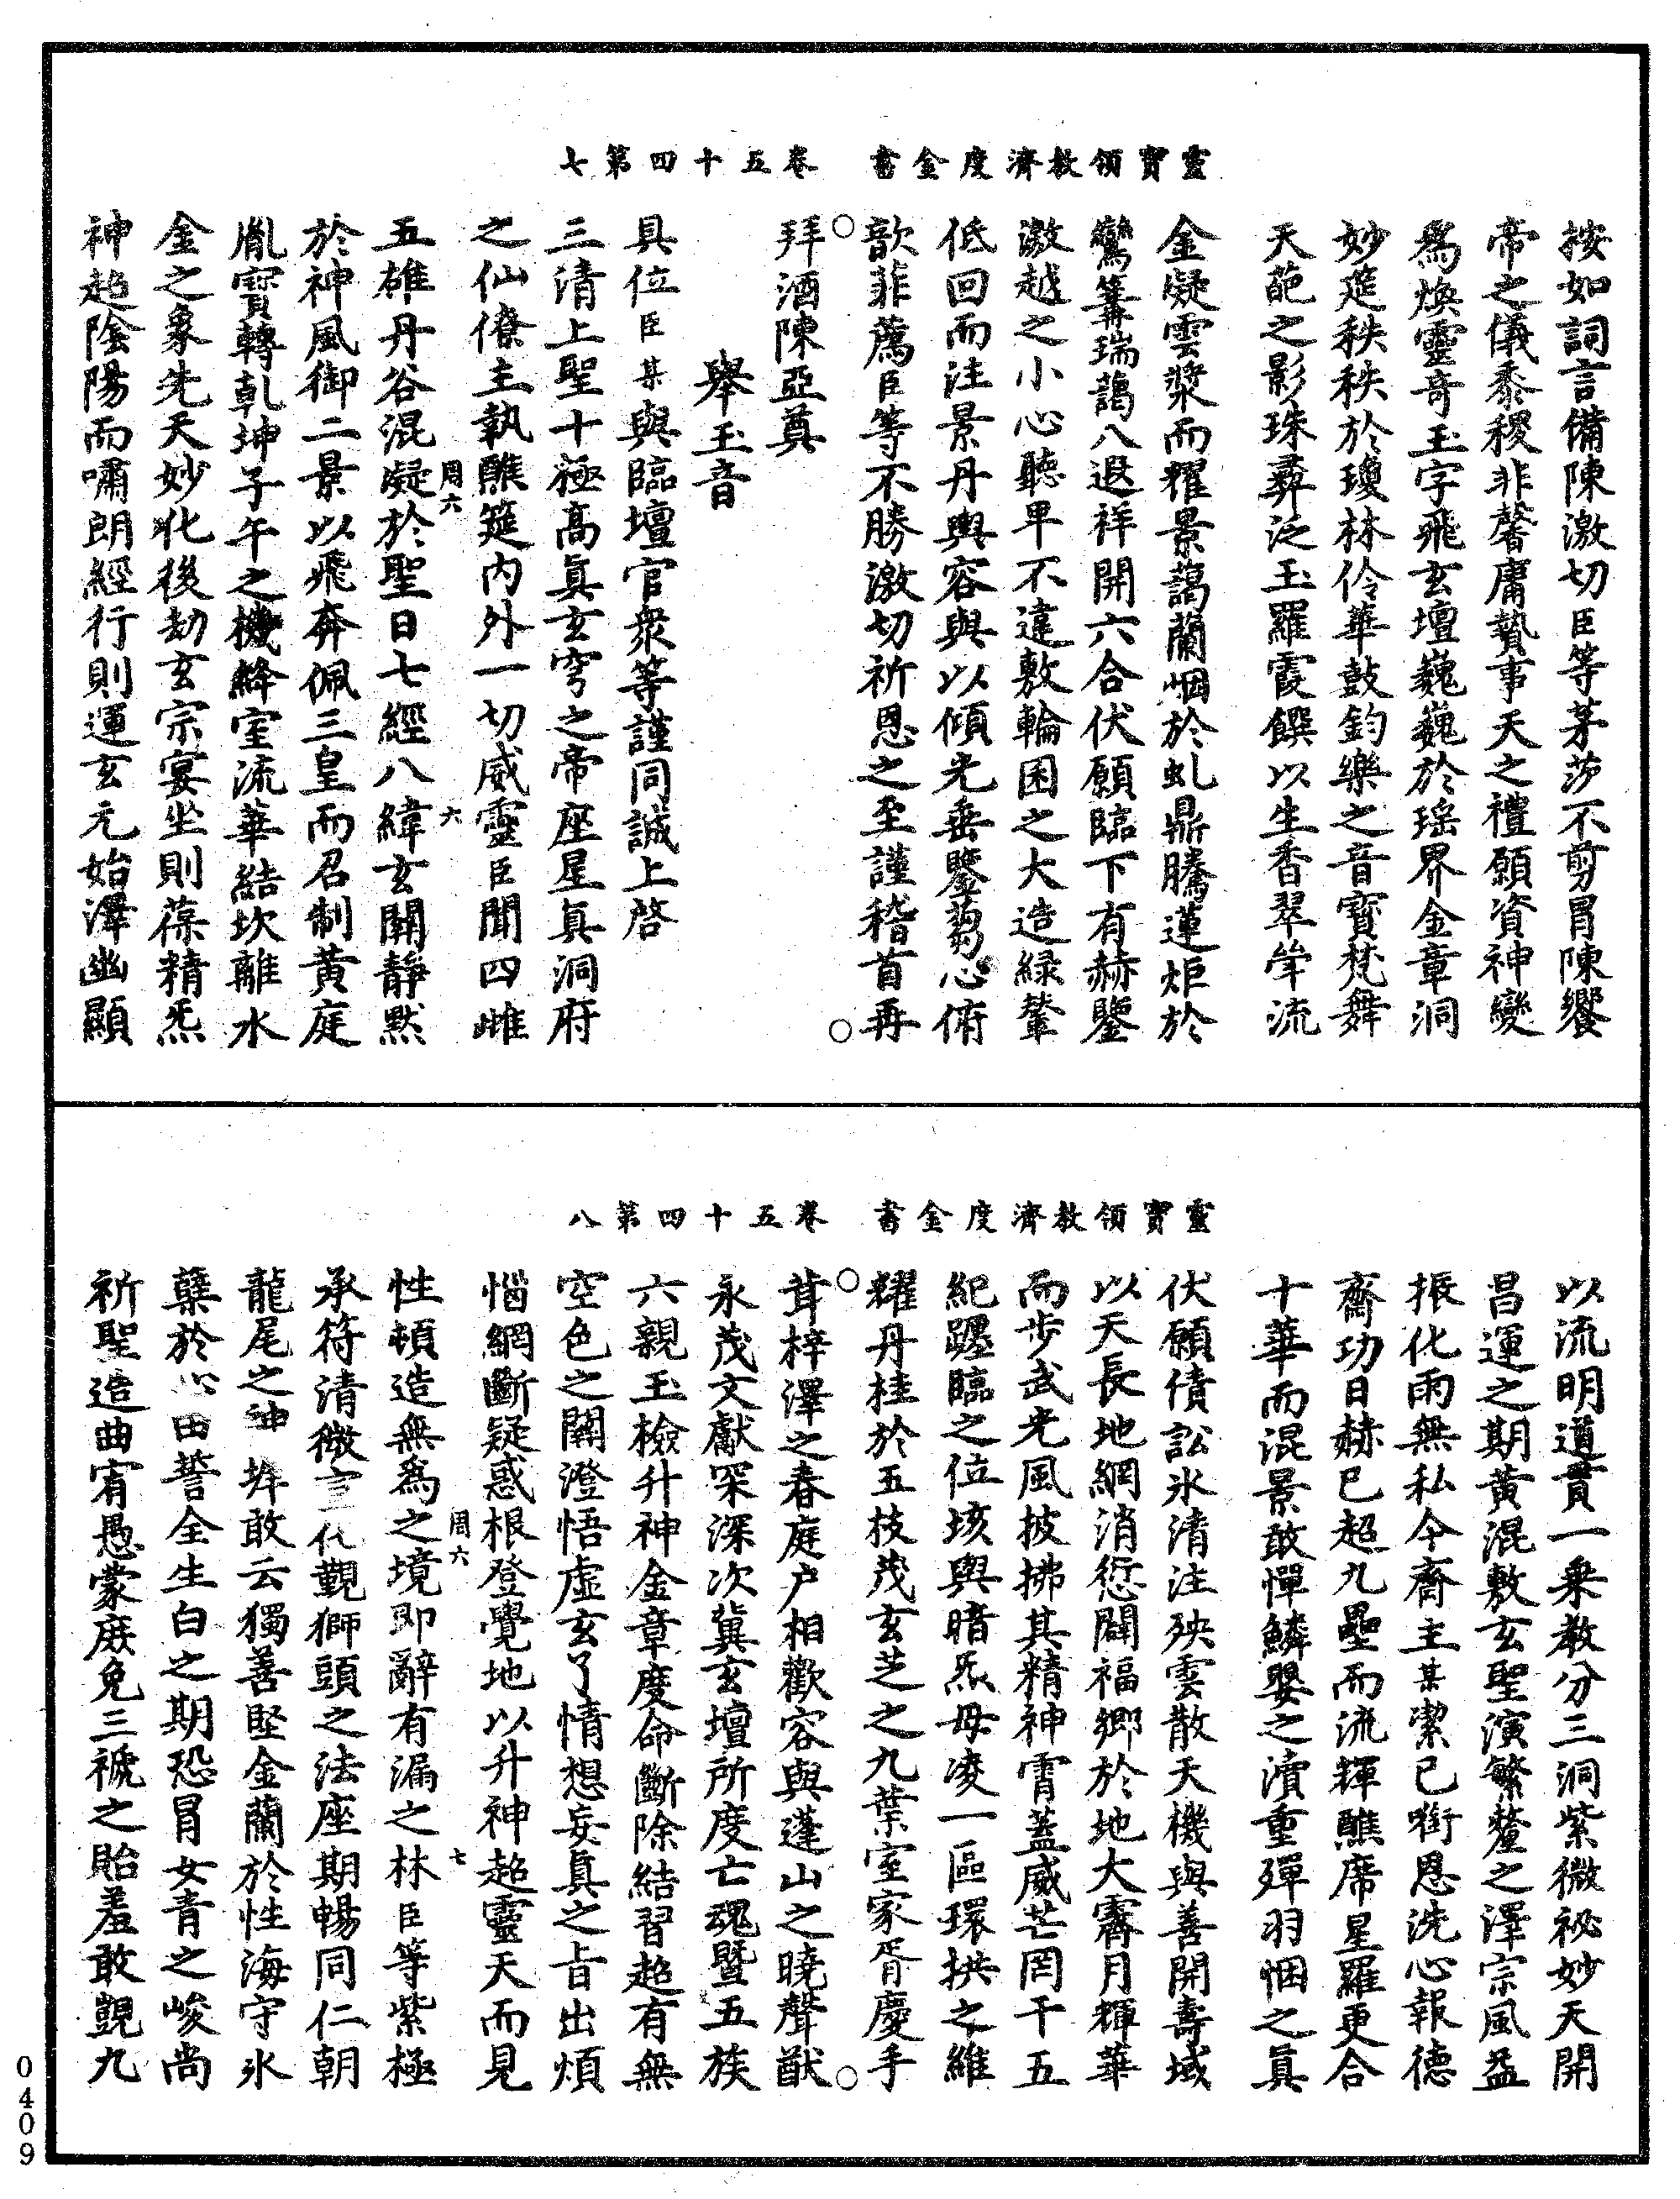 靈寶領教濟度金書　卷五十四第七
按如詞言備陳激切臣等茅莎不剪冒陳饗
帝之儀黍稷非馨庸贄事天之禮願資神變
爲煥靈奇玉字飛玄壇巍巍於瑶界金章洞
妙筵秩秩於瓊林伶華鼓鈞樂之音寳梵舞
天葩之影珠彛泛玉羅霞饌以生香翠斝流
金凝雲漿而耀景藹蘭烟於虬鼎騰蓮炬於
鸞篝瑞藹八遐祥開六合伏願臨下有赫鑒
激越之小心聽卑不違敷輪囷之大造緑輦
低回而注景丹輿容與以傾光垂鑒蒭心俯
歆菲薦臣等不勝激切祈恩之至謹稽首再
拜酒陳亞奠
舉玉音
具位臣某與臨壇官衆等謹同誠上啓
三清上聖十極高眞玄穹之帝座星眞洞府
之仙僚主執醮筵内外一切威靈臣聞四雌
周六　六
五雄丹谷混凝於聖日七經八緯玄關靜默
於神風御二景以飛奔佩三皇而召制黃庭
胤寳轉乾坤子午之機絳室流華結坎離水
金之象先天妙化後劫玄宗宴坐則葆精炁
神超陰陽而嘯朗經行則運玄元始澤幽顯
靈寶領教濟度金書　卷五十四第八
以流明道貫一乘教分三洞紫微祕妙天開
昌運之期黃混敷玄聖演繁釐之澤宗風益
振化雨無私今齋主某潔已銜恩洗心報德
齋功日赫已超九壘而流輝醮席星羅更合
十華而混景敢憚鱗嬰之瀆重殫羽悃之眞
伏願債訟氷清注殃雲散天機與善開壽域
以天長地網消愆闢福鄉於地大霽月輝華
而步武光風披拂其精神霄蓋威芒罔干五
紀躔臨之位垓與暗炁毋凌一區環拱之維
耀丹桂於五枝茂玄芝之九葉室家胥慶手
茸梓澤之春庭户相歡容與蓬山之曉聲猷
永茂文獻罙深次冀玄壇所度亡魂曁五族
六親玉檢升神金章度命斷除結習超有無
空色之關澄悟虛玄了情想妄眞之旨出煩
惱網斷疑惑根登覺地以升神超靈天而見
周六　七
性頓造無爲之境即辭有漏之林臣等紫極
承符清微宣化覲獅頭之法座期暢同仁朝
龍尾之神墀敢云獨善堅金蘭於性海守氷
蘖於心田誓全生白之期恐冒女青之峻尚
祈聖造曲宥愚蒙庶免三褫之貽羞敢覬九
0409